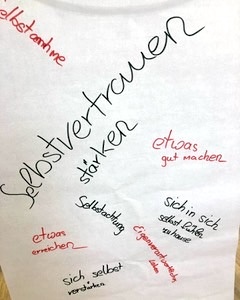 Selbstannahme
Selbstvertrauen
stärken
etwas
gut machen
Selbstachtung
sich in sich
selbst
zuhause
etwas
erreichen
Eigenverantwortlich
leben
sich selbst
verstehen